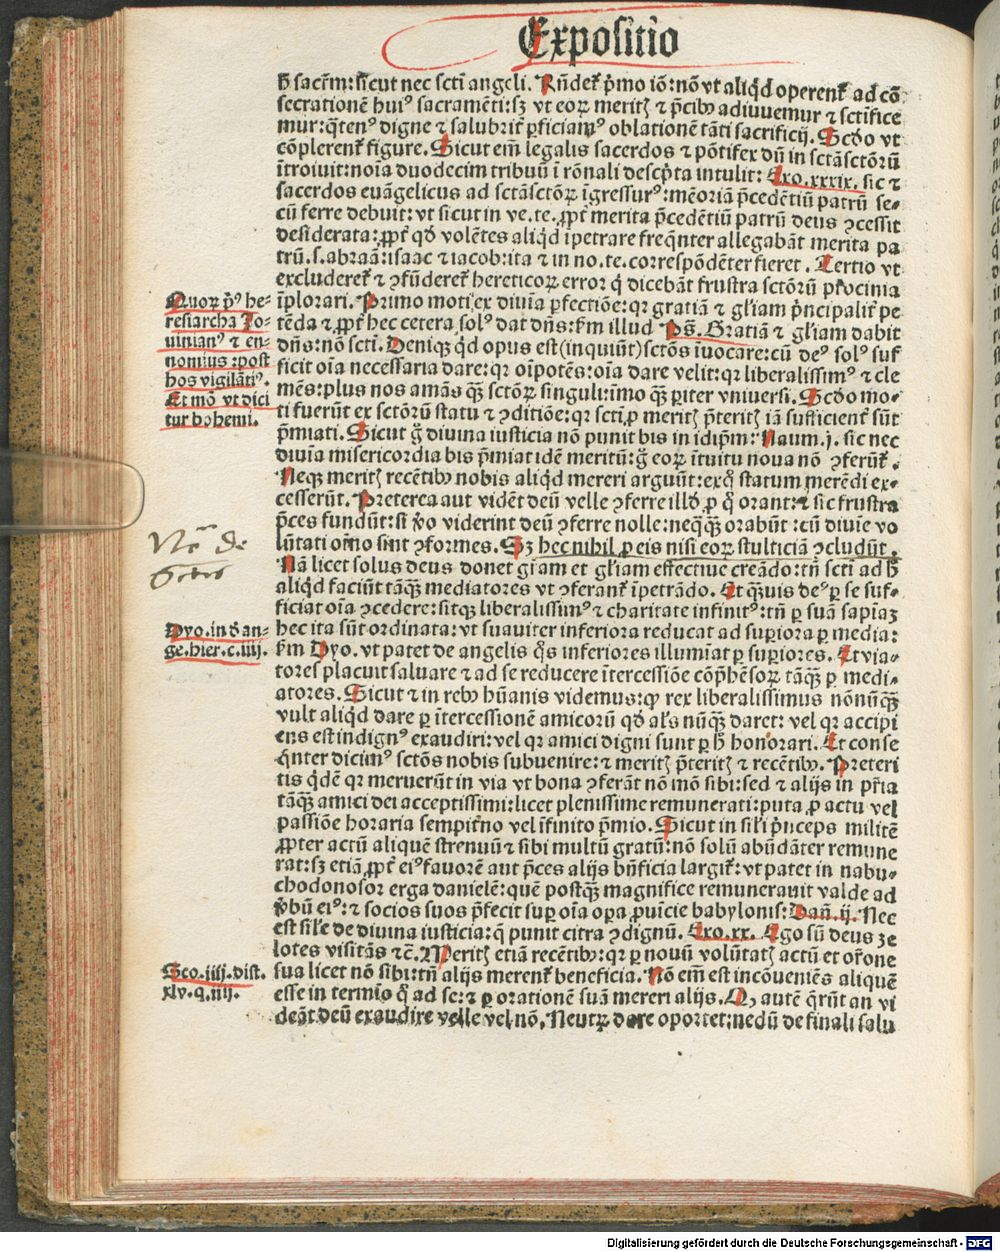 Expositio
ħ sacr̄m: sicut nec sctī angeli. Rn̄det̄ p̄mo iō: nō vt aliqͥd operent̄ ad cō
secrationē huiꝰ sacramēti: sꝫ vt eoꝝ meritꝭ ⁊ p̄cibꝰ adiuuemur ⁊ sctīfice
mur: qͣtenꝰ digne ⁊ salubrit̄ ꝑficiamꝰ oblationē tāti sacrificij. Scdo vt
cōplerent̄ figure. Sicut em̄ legalis sacerdos ⁊ pōtifex dū in sctā sctōrū
ītroiuit: noīa duodecim tribuū ī rōnali descp̄ta intulit: Exo.xxxix. sic ⁊
sacerdos euāgelicus ad sctā sctōꝝ īgressurꝰ: mēoriā p̄cedētiū patrū se-
cū ferre debuit: vt sicut in ve.te. ꝓpt̄ merita p̄cedētiū patrū deus ꝯcessit
desiderata: ꝓpt̄ qd̄ volētes aliqͥd īpetrare freqn̄ter allegabāt merita pa
trū.s. abraā: isaac ⁊ iacob: ita ⁊ in no.te. correspōdēter fieret. Tertio vt
excluderet̄ ⁊ ꝯfūderet̄ hereticoꝝ error qͥ dicebāt frustra sctōrū pr̄ocinia
īplorari. Primo moti ex diuīa ꝑfectiōe: qꝛ gratiā ⁊ gl̄iam pͥncipalit̄ pe
tēda ⁊ ꝓpt̄ hec cetera solꝰ dat dn̄s: km̄ illud Ps̄. Gratiā ⁊ gl̄iam dabit
dn̄s: nō sctī. Deniqꝫ qͥd opus est (inquiūt) sctōs īuocare: cū deꝰ solꝰ suf
ficit oīa necessaria dare: qꝛ oīpotēs: oīa dare velit: qꝛ liberalissimꝰ ⁊ cle
mēs: plus nos amās qͣꝫ sctōꝝ singuli: īmo qͣꝫ ꝑiter vniuersi. Scdo mo-
ti fuerūt ex sctōrū statu ⁊ ꝯditiōe: qꝛ sctī ꝓ meritꝭ p̄teritꝭ iā sufficient̄ sūt
p̄miati. Sicut gͦ diuina iusticia nō punit bis in idip̄m: Naum.j. sic nec
diuīa misericordia bis p̄miat idē meritū: gͦ eoꝝ ītuitu noua nō ꝯferūt̄.
Neqꝫ meritꝭ recētibꝰ nobis aliqͥd mereri arguūt: ex qͦ statum merēdi ex-
cesserūt. Preterea aut vidēt deū velle ꝯferre illd̄ ꝓ qͦ orant: ⁊ sic frustra
p̄ces fundūt: si v̄o viderint deū ꝯferre nolle: neqͣqͣꝫ orabūt: cū diuīe vo
lūtati oīno sint ꝯformes. Sꝫ hec nihil ꝓ eis nisi eoꝝ stulticiā ꝯcludūt.
Nā licet solus deus donet gr̄am et gl̄iam effectiue creādo: tn̄ sctī ad ħ
aliqͥd faciūt tāqͣꝫ mediatores vt ꝯferant̄ īpetrādo. Et qͣꝫuis deꝰ ꝑ se suf-
ficiat oīa ꝯcedere: sitqꝫ liberalissimꝰ ⁊ charitate infinitꝰ: tn̄ ꝑ suā sapīaꝫ
hec ita sūt ordinata: vt suauiter inferiora reducat ad suꝑiora ꝑ media:
km̄ Dyo. vt patet de angelis qͦs inferiores illumīat ꝑ suꝑiores. Et via-
tores placuit saluare ⁊ ad se reducere ītercessiōe cōp̄hēsoꝝ tāqͣꝫ ꝑ medi-
atores. Sicut ⁊ in rebꝰ hūanis videmus: ꝙ rex liberalissimus nōnūqͣꝫ
vult aliqͥd dare ꝑ ītercessionē amicorū qd̄ al̄s nūqͣꝫ daret: vel qꝛ accipi
ens est indignꝰ exaudiri: vel qꝛ amici digni sunt ꝑ ħ honorari. Et conse
qn̄ter dicimꝰ sctōs nobis subuenire: ⁊ meritꝭ p̄teritꝭ ⁊ recētibꝰ. Preteri
tis qͥdē qꝛ meruerūt in via vt bona ꝯferāt nō mō sibi: sed ⁊ alijs in pr̄ia
tāqͣꝫ amici dei acceptissimi: licet plenissime remunerati: puta ꝓ actu vel
passiōe horaria sempit̄no vel īfinito p̄mio. Sicut in sil̄i pͥnceps militē
ꝓpter actū aliquē strenuū ⁊ sibi multū gratū: nō solū abūdāter remune
rat: sꝫ etiā ꝓpt̄ eiꝰ fauorē aut p̄ces alijs bn̄ficia largit̄: vt patet in nabu-
chodonosor erga danielē: quē postqͣꝫ magnifice remunerauit valde ad
v̄bū eiꝰ: ⁊ socios suos p̄fecit suꝑ oīa oꝑa ꝓuīcie babylonis: Dan̄.ij. Nec
est sil̄e de diuina iusticia: q̄ punit citra ꝯdignū. Exo.xx. Ego sū deus ze
lotes visitās ⁊c̄. Meritꝭ etiā recētibꝰ: qꝛ ꝑ nouū volūtatꝭ actū et or̄one
sua licet nō sibi: tn̄ alijs merent̄ beneficia. Nō em̄ est incōueniēs aliquē
esse in termīo qͦ ad se: ⁊ ꝑ orationē suā mereri alijs. Qꝫ autē qͥrūt an vi
deāt deū exaudire velle vel nō. Neutꝝ dare oportet: nedū de finali salu
Quoꝝ p̄ꝰ he-
resiarcha Jo-
uinianꝰ ⁊ en-
nomius: post
hos vigilātiꝰ.
Et mō vt dici
tur bohemi.
Dyo. in d̄ an-
ge. hier. c. iiij.
Sco. iiij. dist.
xlv. q. iiij.
Digitalisierung gefördert durch die Deutsche Forschungsgemeinschaft - DFG